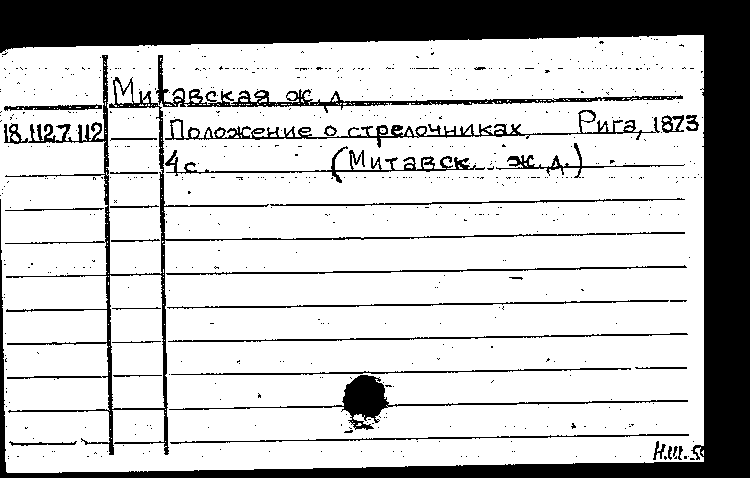 Митавская ж.д.
18.112.7.112 Положение о стрелочниках. Рига, 1873
4 с. (Митавск. ж.д.)